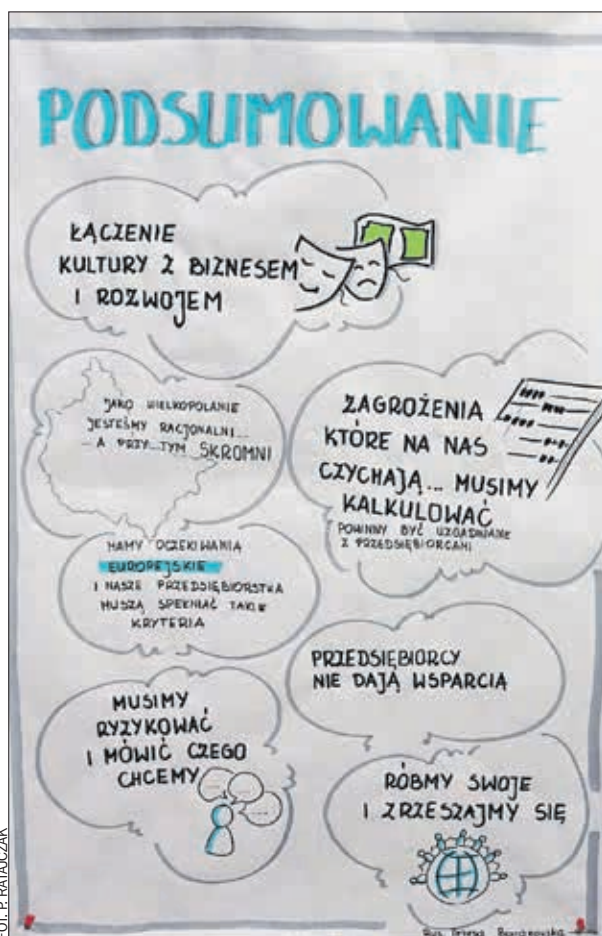 PODSUMOWANIE
ŁĄCZENIE
KULTURY Z BIZNESEM
I ROZWOJEM
JAKO WIELKOPOLANIE
JESTEŚMY RACJONALNI...
... A PRZY...TYM SKROMNI
ZAGROŻENIA
KTÓRE NA NAS
CZYCHAJĄ... MUSIMY
KALKULOWAĆ
POWINNY BYĆ UZGADNIANE
Z PRZEDSIĘBIORCAMI
MAMY OCZEKIWANIA
EUROPEJSKIE
I NASZE PRZEDSIĘBIORSTWA
MUSZĄ SPEŁNIAĆ TAKIE
KRYTERIA
PRZEDSIĘBIORCY
NIE DAJĄ WSPARCIA
MUSIMY
RYZYKOWAĆ
I MÓWIĆ CZEGO
CHCEMY
RÓBMY SWOJE
I ZRZESZAJMY SIĘ
Rys. Teresa
FOT. P. RATAJCZAK